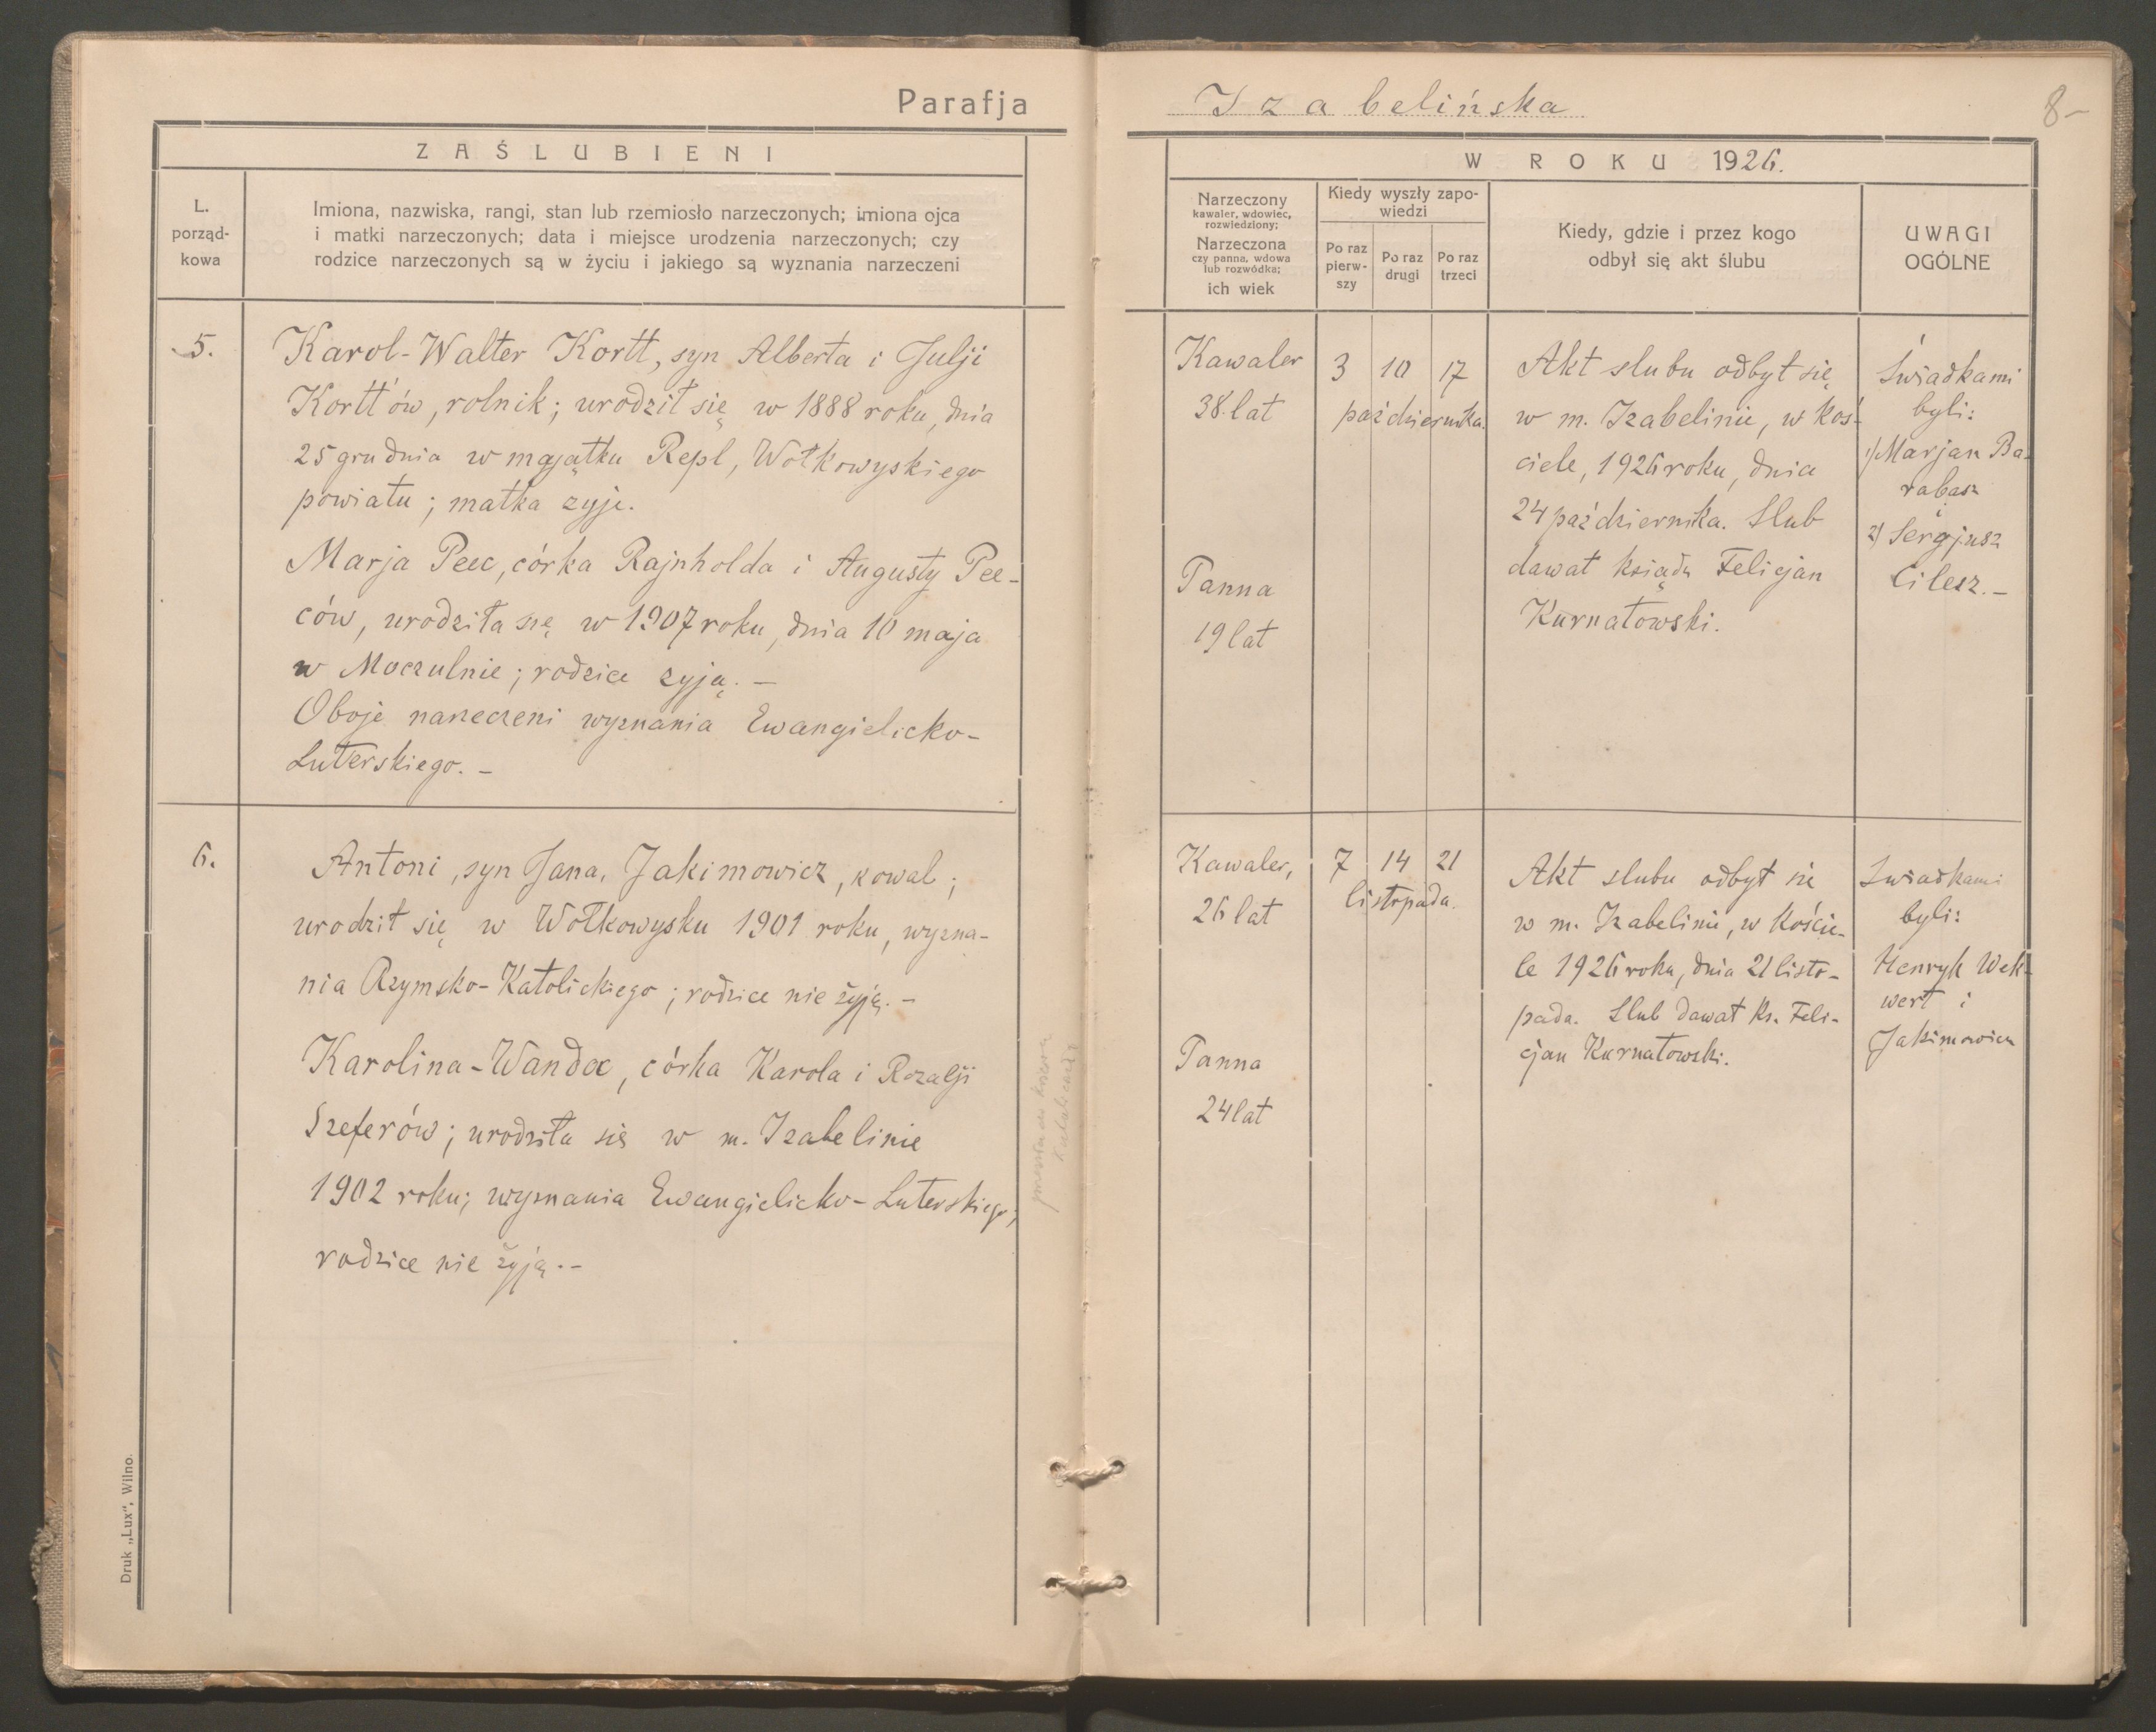 Parafja
ZAŚLUBIENI
L.
porząd-
kowa
Imiona, nazwiska, rangi, stan lub rzemiosło narzeczonych; imiona ojca
i matki narzeczonych; data i miejsce urodzenia narzeczonych; czy
rodzice narzeczonych są w życiu i jakiego są wyznania narzeczeni
5.
Karol-Walter Kortt, syn Alberta i Julji
Kortt'ów, rolnik; urodził się w 1888 roku, dnia
25 grudnia w majątku Repl, Wołkowyskiego
powiatu; matka zyje.
Marja Peec, córka Rajnholda i Augusty Pee-
ców, urodziła się w 1907 roku, dnia 10 maja
w Moczulnie; rodzice zyją. —
Oboje narzeczeni wyznania Ewangielicko-
Luterskiego. —
6.
Antoni, syn Jana, Jakimowicz, kowal;
urodził się w Wołkowysku 1901 roku, wyzna-
nia Rzymsko-Katolickiego; rodzice nie żyją. —
Karolina-Wanda, córka Karola i Rozalji
Szeferów; urodziła się w m. Izabelinie
1902 roku; wyznania Ewangielicko-Luterskiego;
rodzice nie żyją. —
Druk „Lux", Wilno.
Izabelińska
8-
W ROKU 1926.
Narzeczony
kawaler, wdowiec,
rozwiedziony;
Narzeczona
czy panna, wdowa
lub rozwódka;
ich wiek
Kiedy wyszły zapo-
wiedzi
Po raz
pierw-
szy
Po raz
drugi
Po raz
trzeci
Kiedy, gdzie i przez kogo
odbył się akt ślubu
UWAGI
OGÓLNE
Kawaler
38 lat
Panna
19 lat
3 10 17
października.
Akt slubu odbył się
w m. Izabelinie, w koś-
ciele, 1926 roku, dnia
24 października. Slub
dawał ksiądz Felicjan
Kurnatowski.
Świadkami
byli:
1) Marjan Ba-
rabasz
i
2) Sergjusz
Cilesz. —
Kawaler,
26 lat
Panna
24 lat
7 14 21
listopada.
Akt slubu odbył sie
w m. Izabelinie, w Koście-
le 1926 roku, dnia 21 listo-
pada. Slub dawał Ks. Feli-
cjan Kurnatowski.
Swiadkami
byli:
Henryk Wek-
wert i
Jakimowicz